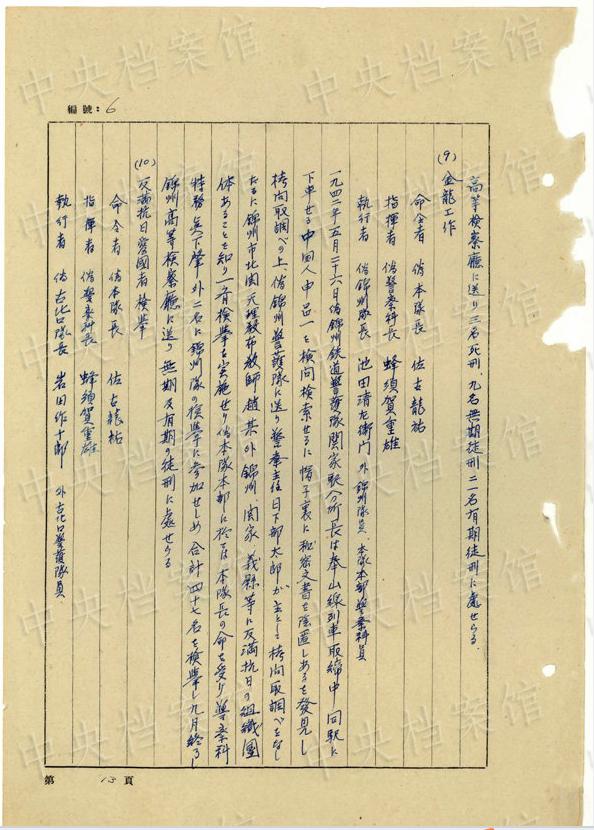 編號：6
高等検察廳に送り三名死刑、九名無期徒刑 二二名有期徒刑に處せらる、
(9) 金龍工作
命令者 偽本隊長 佐古龍祐
指揮者 偽警務科長 蜂須賀重雄
執行者 偽錦州隊長 池田清左衛門 外 錦州隊員、本隊本部警務科員
一九四二年五月二十六日偽錦州鉄道警護隊 家駅分所長は奉山線列車取締中 同駅に
下車せる中国人 を検問検索せるに 帽子裏に秘密文書を隠匿しあるを発見し
拷問取調べの上、偽錦州警護隊に送り警務主任日下部太郎が主として拷問取調べをなし
たるに錦州市北関天理教布教師趙某外錦州、 家、義縣等に反満抗日の組織團
体あることを知り一斉検挙を実施せり 偽本隊本部に於ては本隊長の命を受け警務科
特務 下肇 外二名に錦州隊の検挙に参加せしめ 合計四十七名を検挙し九月終了し
錦州高等検察廳に送り 無期及有期の徒刑に處せらる
(10) 反満抗日愛國者検挙
命令者 偽本隊長 佐古龍祐
指揮者 偽警務科長 蜂須賀重雄
執行者 偽古北口隊長 岩田作十郎 外古北口警護隊員
第 13 頁
中央档案馆